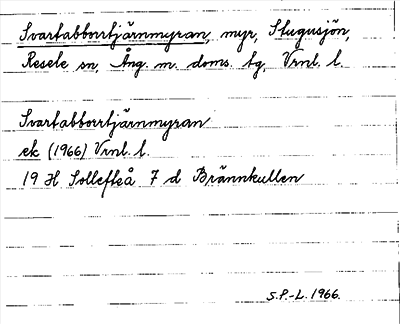 Svartabborrtjärnmyran, myr, Stugusjön,
Resele sn, Ång. m. doms. tg, Vrnl. l.
Svartabborrtjärnmyran
ek (1966) Vrnl. l.
19 H Sollefteå 7 d Brännkullen
S.P.-L. 1966.